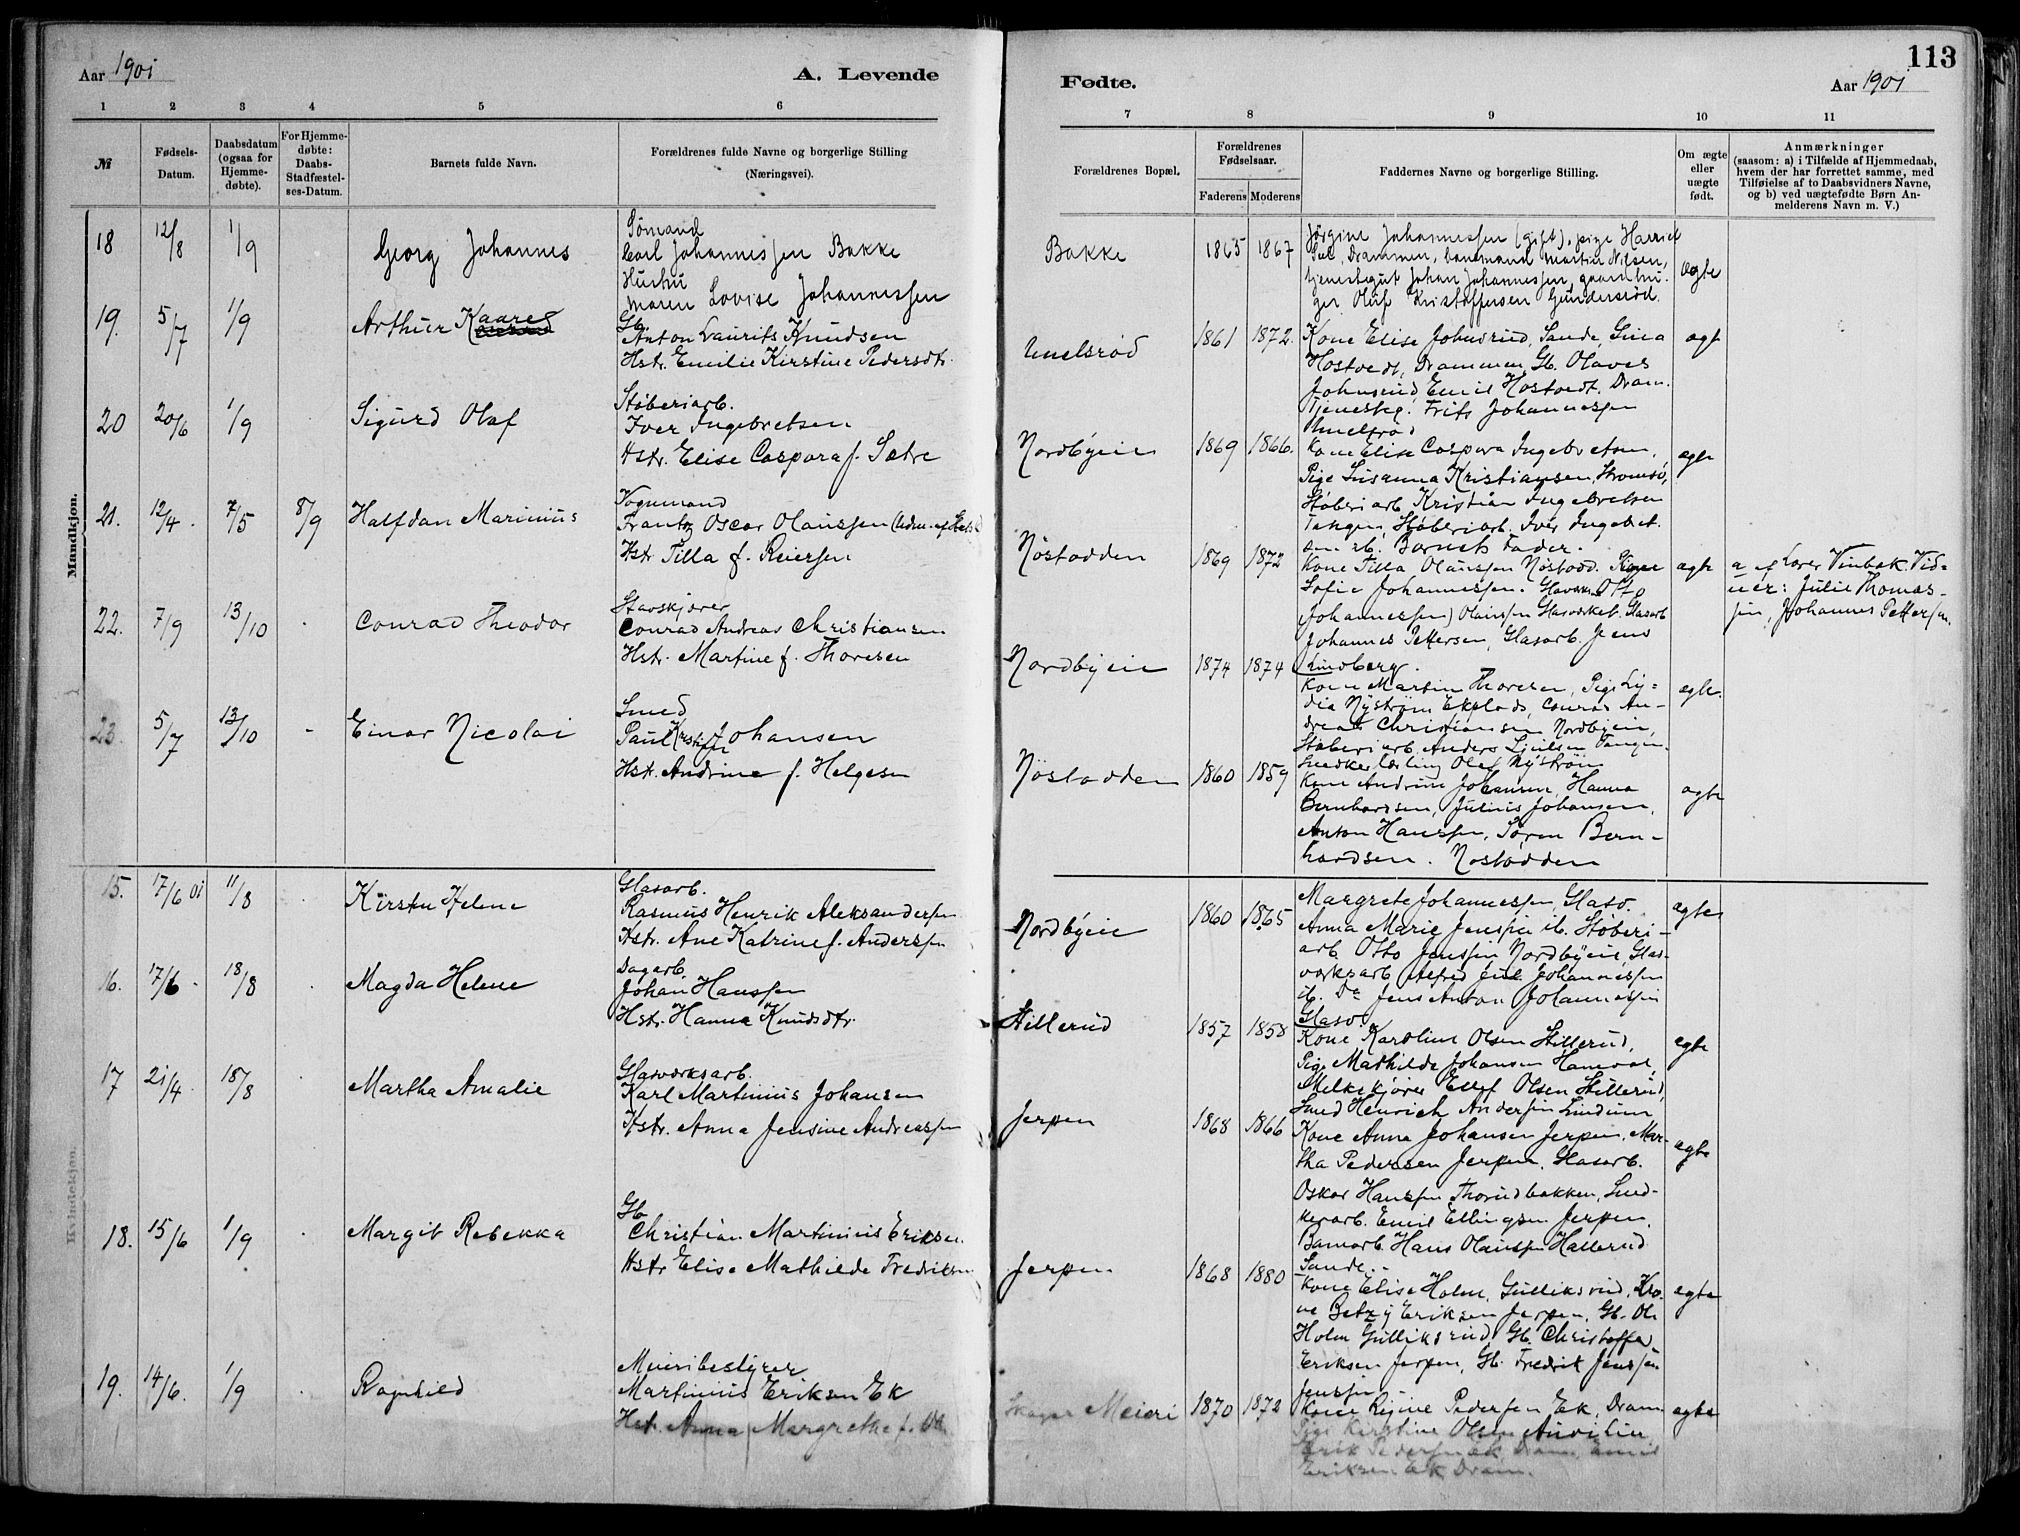 Aar 1901
A. Levende
1 2 3 4 5 6
№
Fødsels-
Datum.
Daabsdatum
(ogsaa for
Hjemme-
døbte).
For Hjemme-
døbte:
Daabs-
Stadfæstel-
ses-Datum.
Barnets fulde Navn.
Forældrenes fulde Navne og borgerlige Stilling
(Næringsvei).
Mandkjøn.
18 12/8 1/9
Georg Johannes
Sømand
Carl Johannessen Bakke
Hustru
Maren Lovise Johannessen
19. 5/7 1/9
Arthur Kaare
Gb.
Anton Laurits Knudsen
Hstr. Emilie Kirstine Pedersdtr.
20 20/6 1/9
Sigurd Olaf
Støberiarb.
Iver Ingebretsen
Hstr. Elise Caspara f. Sætre
21. 12/4. 7/5 8/9
Halfdan Marinius
Vognmand
Frantz Oscar Olaussen
Hstr Tilla f. Reiersen
22. 7/9 13/10
Conrad Theodor
Conrad Andreas Christiansen
Hstr. Martine f. Thoresen
23. 5/7 13/10 -
Einar Nicolai
Smed
Paul Kristian Johansen
Hstr. Andrine f. Helgesen
Kvindekjøn.
15. 17/6 01 11/8
Kirsten Helene
Glasarb.
Rasmus Henrik Aleksandersen
Hstr. Ane Katrine f. Andersen
16. 17/6 18/8
Magda Helene
Dagarb.
Johan Hanssen
Hstr. Hanna Knudsdtr.
17 21/4 18/8
Martha Amalie
Glasværksarb.
Karl Martinius Johansen
Hstr. Anna Jensine Andreassen
18. 15/6 1/9
Margit Rebekka
Gb.
Christian Martinius Eriksen
Hstr Elise Mathilde Fredriksen
19. 14/6. 1/9
Ragnhild
Meieribestyrer
Martinius Eriksen Ek
Hstr. Anna Margrethe f.
113
Fødte.
Aar 1901
7 8 9 10 11
Forældrenes Bopæl.
Forældrenes
Fødselsaar.
Faderens Moderens
Faddernes Navne og borgerlige Stilling.
Om ægte
eller
uægte
født.
Anmærkninger
(saasom: a) i Tilfælde af Hjemmedaab,
hvem der har forrettet samme, med
Tilføielse af to Daabsvidners Navne,
og b) ved uægtefødte Børn An-
melderens Navn m. V.)
Bakke 1865 1867
Jørgine Johannessen (gift), pige Harriet
Drammen, Martin Nilsen,
tjenestegut Johan Johannessen, gaardbru-
ger Oluf Kristoffersen Gundersrød.
ægte
Unelsrød 1861 1872.
Kone Elise Johnsrud, Sande, Gina
Hostvedt, Drammen, Gb. Olaves
Johnsrud, Emil Hostvedt. Dram.
Tjenesteg. Frits Johannessen
Unelsrød
ægt
Nordbyeie 1869 1866.
Kone Elise Caspara Ingebretsen,
Pige Susanna Kristiansen, Strømsø,
Støberiarb. Kristian Ingebretsen
Tangen, Støberiarb. Iver Ingebret-
sen ib. Barnets Fader.
ægte
Nøstodden 1869 1872
Kone Tilla Olaussen Nøstodd. Kone
Sofie Johannessen.
Johannessen) Olaussen Glasværket. Glasarb
Johannes Pettersen, Glasarb. Jens
Lindberg.
ægte
a af Lærer Vinbæk. Vid-
ner: Julie Thomas-
sen, Johannes Pettersen.
Nordbyeie 1874 1874
Kone Martin Thoresen, Pige Ly-
dia Nystrøm Conrad An-
dreas Christiansen Nordbyeie,
Støberiarb. Anders Tangen.
Snedkerlærling Olaf Nystrøm
ægte.
Nøstodden 1860 1859
Kone Andrine Johansen, Hanna
Bernhardsen, Julius Johansen,
Anton Hanssen, Søren Bern-
hardsen. Nøstodden
ægte
Nordbyeie 1860 1865
Margrete Johannessen, Glasv.
Anna Marie Jenssen ib. Støberi-
arb Otto Jenssen Nordbyeie, Glas-
værksarb Alfred Johannessen
ib. Do Jens Anton Johannessen
Glasv
ægte
Hillerud 1857 1858
Kone Karoline Olsen Hillerud,
Pige Mathilde Johansen
Melkekjører Ellef Olsen Hillerud,
Smed Henrich Andersen Lindum
ægte
Jerpen 1868 1866
Kone Anna Johansen Jerpen, Mar-
tha Pedersen Jerpen, Glasarb.
Oskar Hanssen Thorudbakken, Sned-
kerarb. Emil Ellingsen Jerpen,
Hans Olaussen Hallerud
Sande.-
ægte
Jerpen 1868 1880
Kone Elise Holm, Gulliksrud, Ko-
ne Betzy Eriksen Jerpen, Gb. Ole
Holm Gulliksrud, Gb. Christoffer
Eriksen Jerpen, Gb. Fredrik Jenssen
Jenssen
ægte
Skoger Meieri 1870 1872
Kone Regine Pedersen Ek, Dram
Pige Kirstine Olsen
Erik Pedersen Ek, Dram, Emil
Eriksen Ek Dram.
ægte